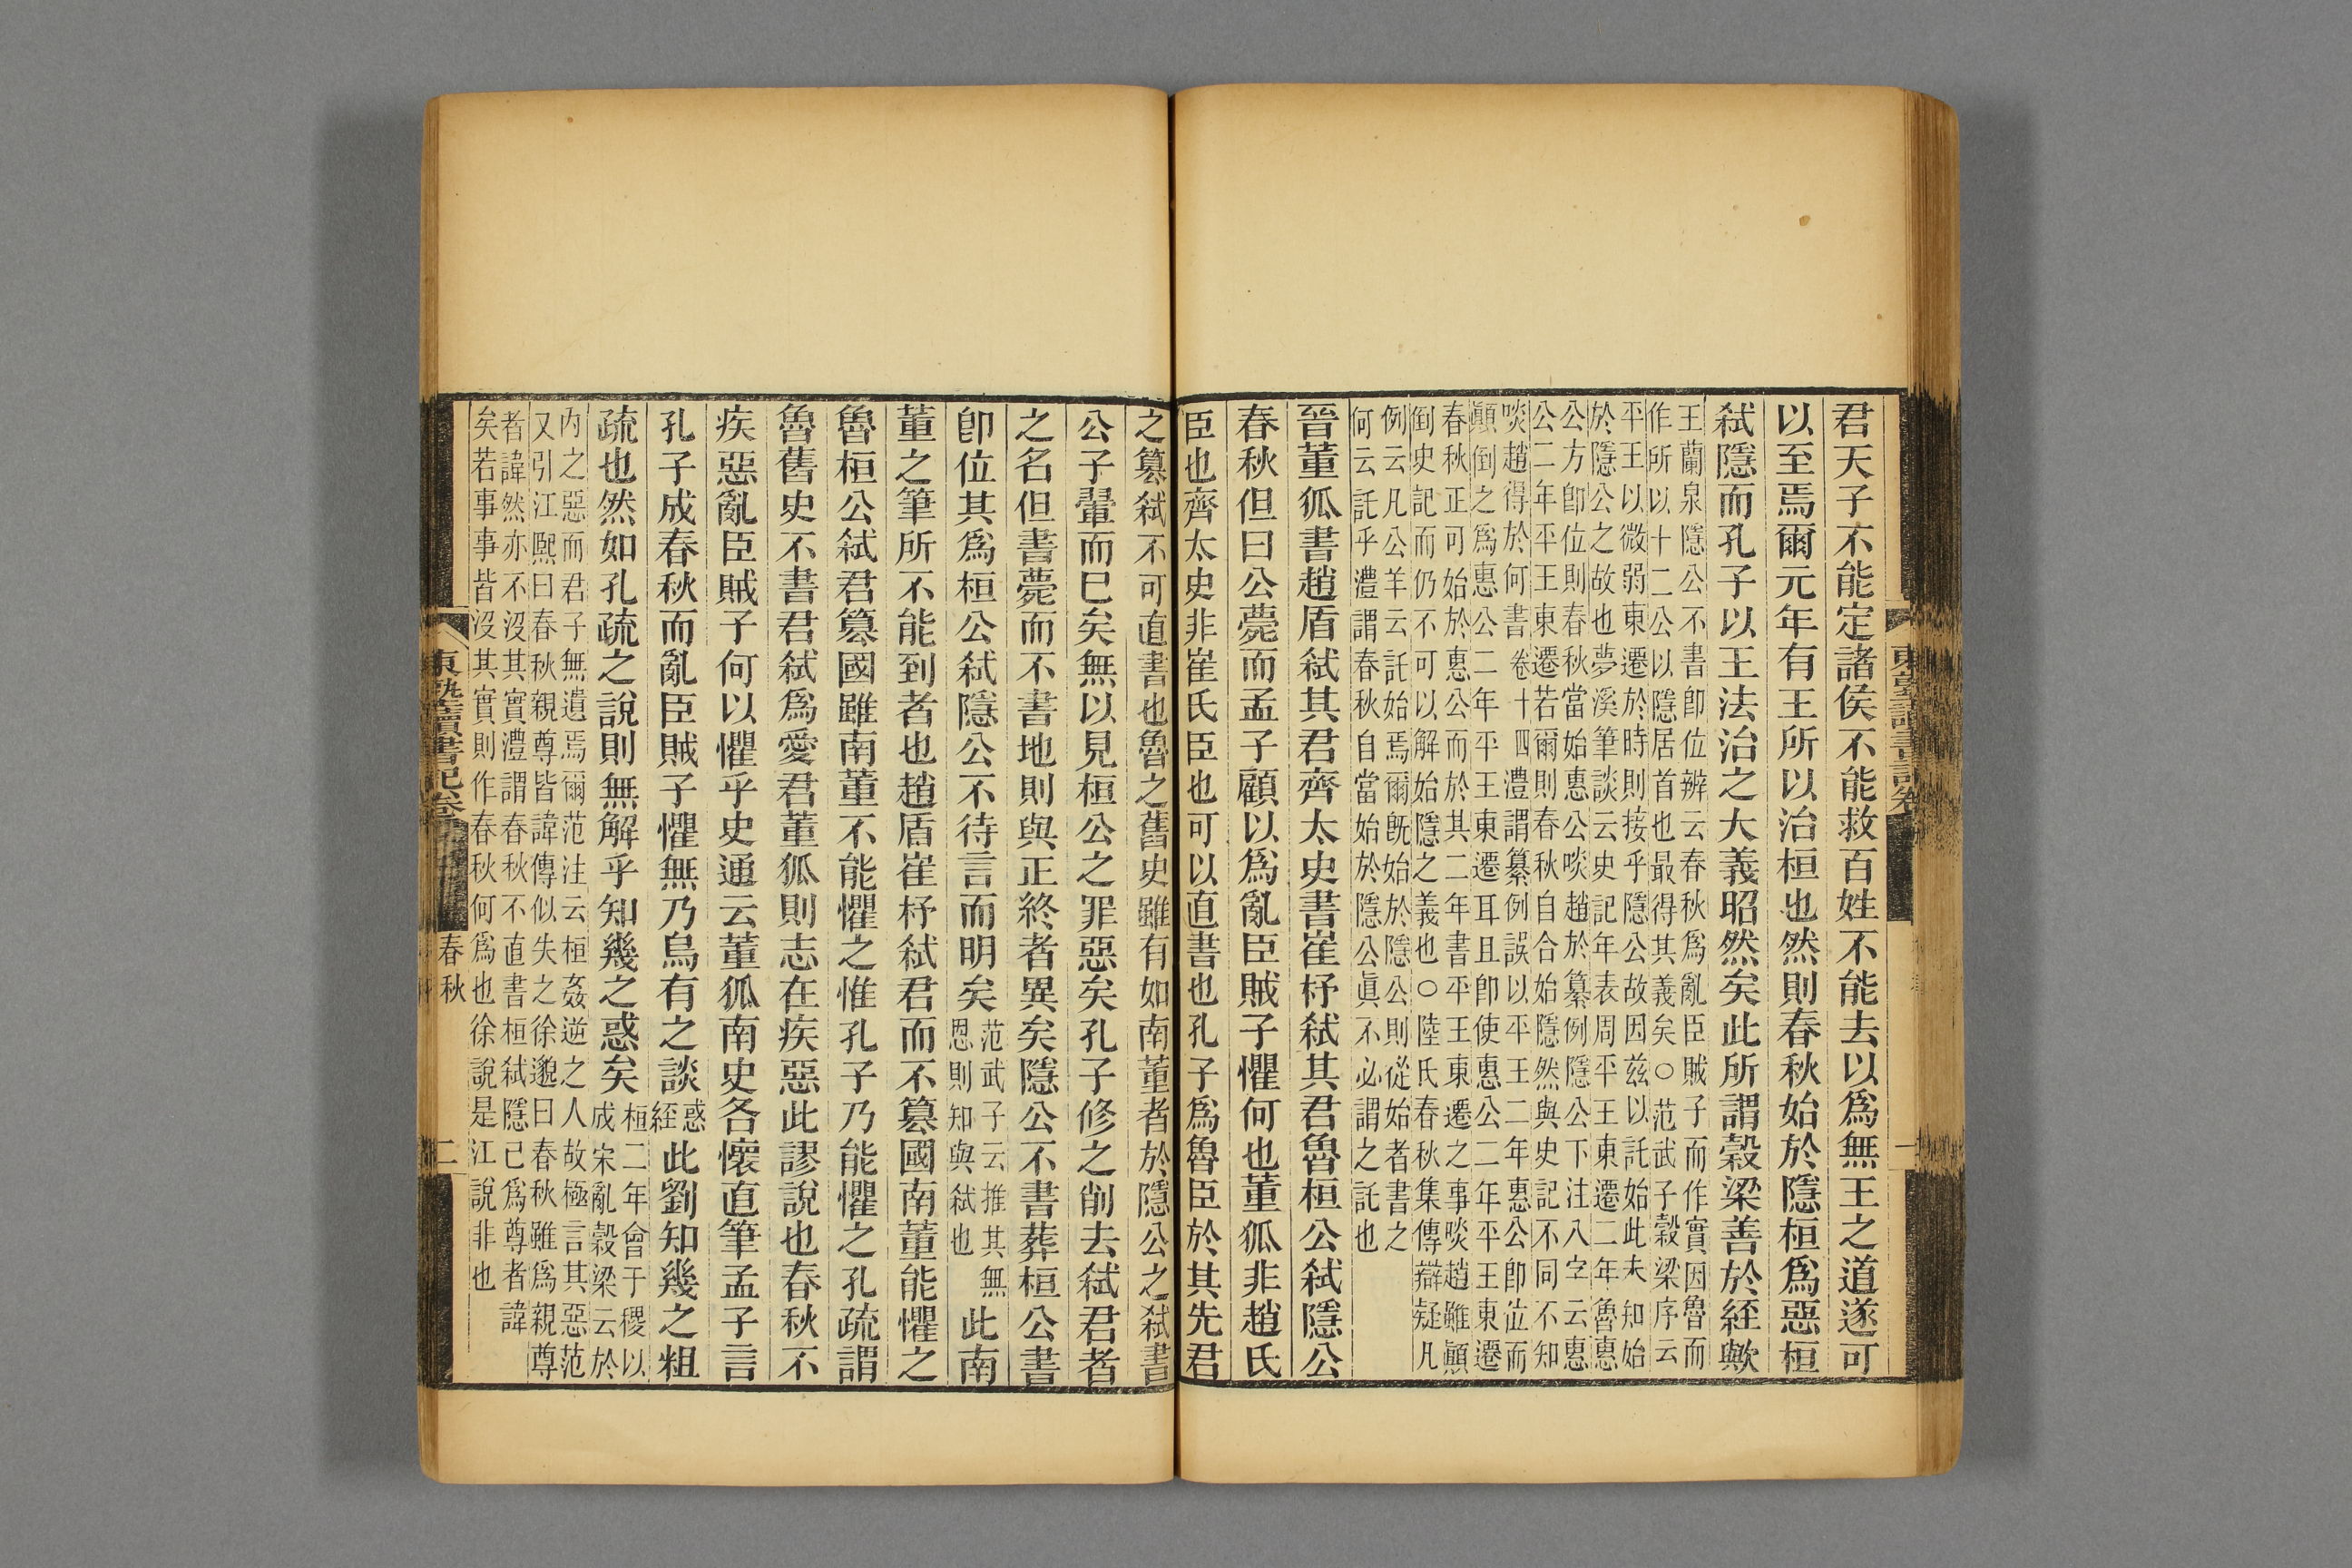 君天子不能定諸侯不能救百姓不能去以爲無王之道遂可
以至焉爾元年有王所以治桓也然則春秋始於隱桓爲惡桓
弑隱而孔子以王法治之大義昭然矣此所謂穀梁善於經歟
王蘭泉隱公不書卽位辨云春秋爲亂臣賊子而作實因魯而
作所以十二公以隱居首也最得其義矣○范武子穀梁序云
平王以微弱東遷於時則接乎隱公故因茲以託始此未知始
於隱公之故也夢溪筆談云史記年表周平王東遷二年魯惠
公方卽位則春秋當始惠公啖趙於纂例隱公下注八字云惠
公二年平王東遷若爾則春秋自合始隱然與史記不同不知
啖趙得於何書卷十四澧謂纂例誤以平王二年惠公卽位而
顚倒之爲惠公二年平王東遷耳且卽使惠公二年平王東遷
春秋正可始於惠公而於其二年書平王東遷之事啖趙雖顚
倒史記而仍不可以解始隱之義也○陸氏春秋集傳辯疑凡
例云凡公羊云託始焉爾旣始於隱公則從始者書之
何云託乎澧謂春秋自當始於隱公眞不必謂之託也
晉董狐書趙盾弑其君齊太史書崔杼弑其君魯桓公弑隱公
春秋但曰公薨而孟子顧以爲亂臣賊子懼何也董狐非趙氏
臣也齊太史非崔氏臣也可以直書也孔子爲魯臣於其先君
之簒弑不可直書也魯之舊史雖有如南董者於隱公之弑書
公子翬而已矣無以見桓公之罪惡矣孔子修之削去弑君者
之名但書薨而不書地則與正終者異矣隱公不書葬桓公書
卽位其爲桓公弑隱公不待言而明矣
范武子云推其無
恩則知與弑也
此南
董之筆所不能到者也趙盾崔杼弑君而不簒國南董能懼之
魯桓公弑君簒國雖南董不能懼之惟孔子乃能懼之孔疏謂
魯舊史不書君弑爲愛君董狐則志在疾惡此謬說也春秋不
疾惡亂臣賊子何以懼乎史通云董狐南史各懷直筆孟子言
孔子成春秋而亂臣賊子懼無乃烏有之談
惑
經
此劉知幾之粗
疏也然如孔疏之說則無解乎知幾之惑矣
桓二年會于稷以
成宋亂穀梁云於
內之惡而君子無遺焉爾范注云桓姦逆之人故極言其惡范
又引江熙曰春秋親尊皆諱傳似失之徐邈曰春秋雖爲親尊
者諱然亦不沒其實澧謂春秋不直書桓弑隱己爲尊者諱
矣若事事皆沒其實則作春秋何爲也徐說是江說非也
東塾讀書記卷
春秋
二